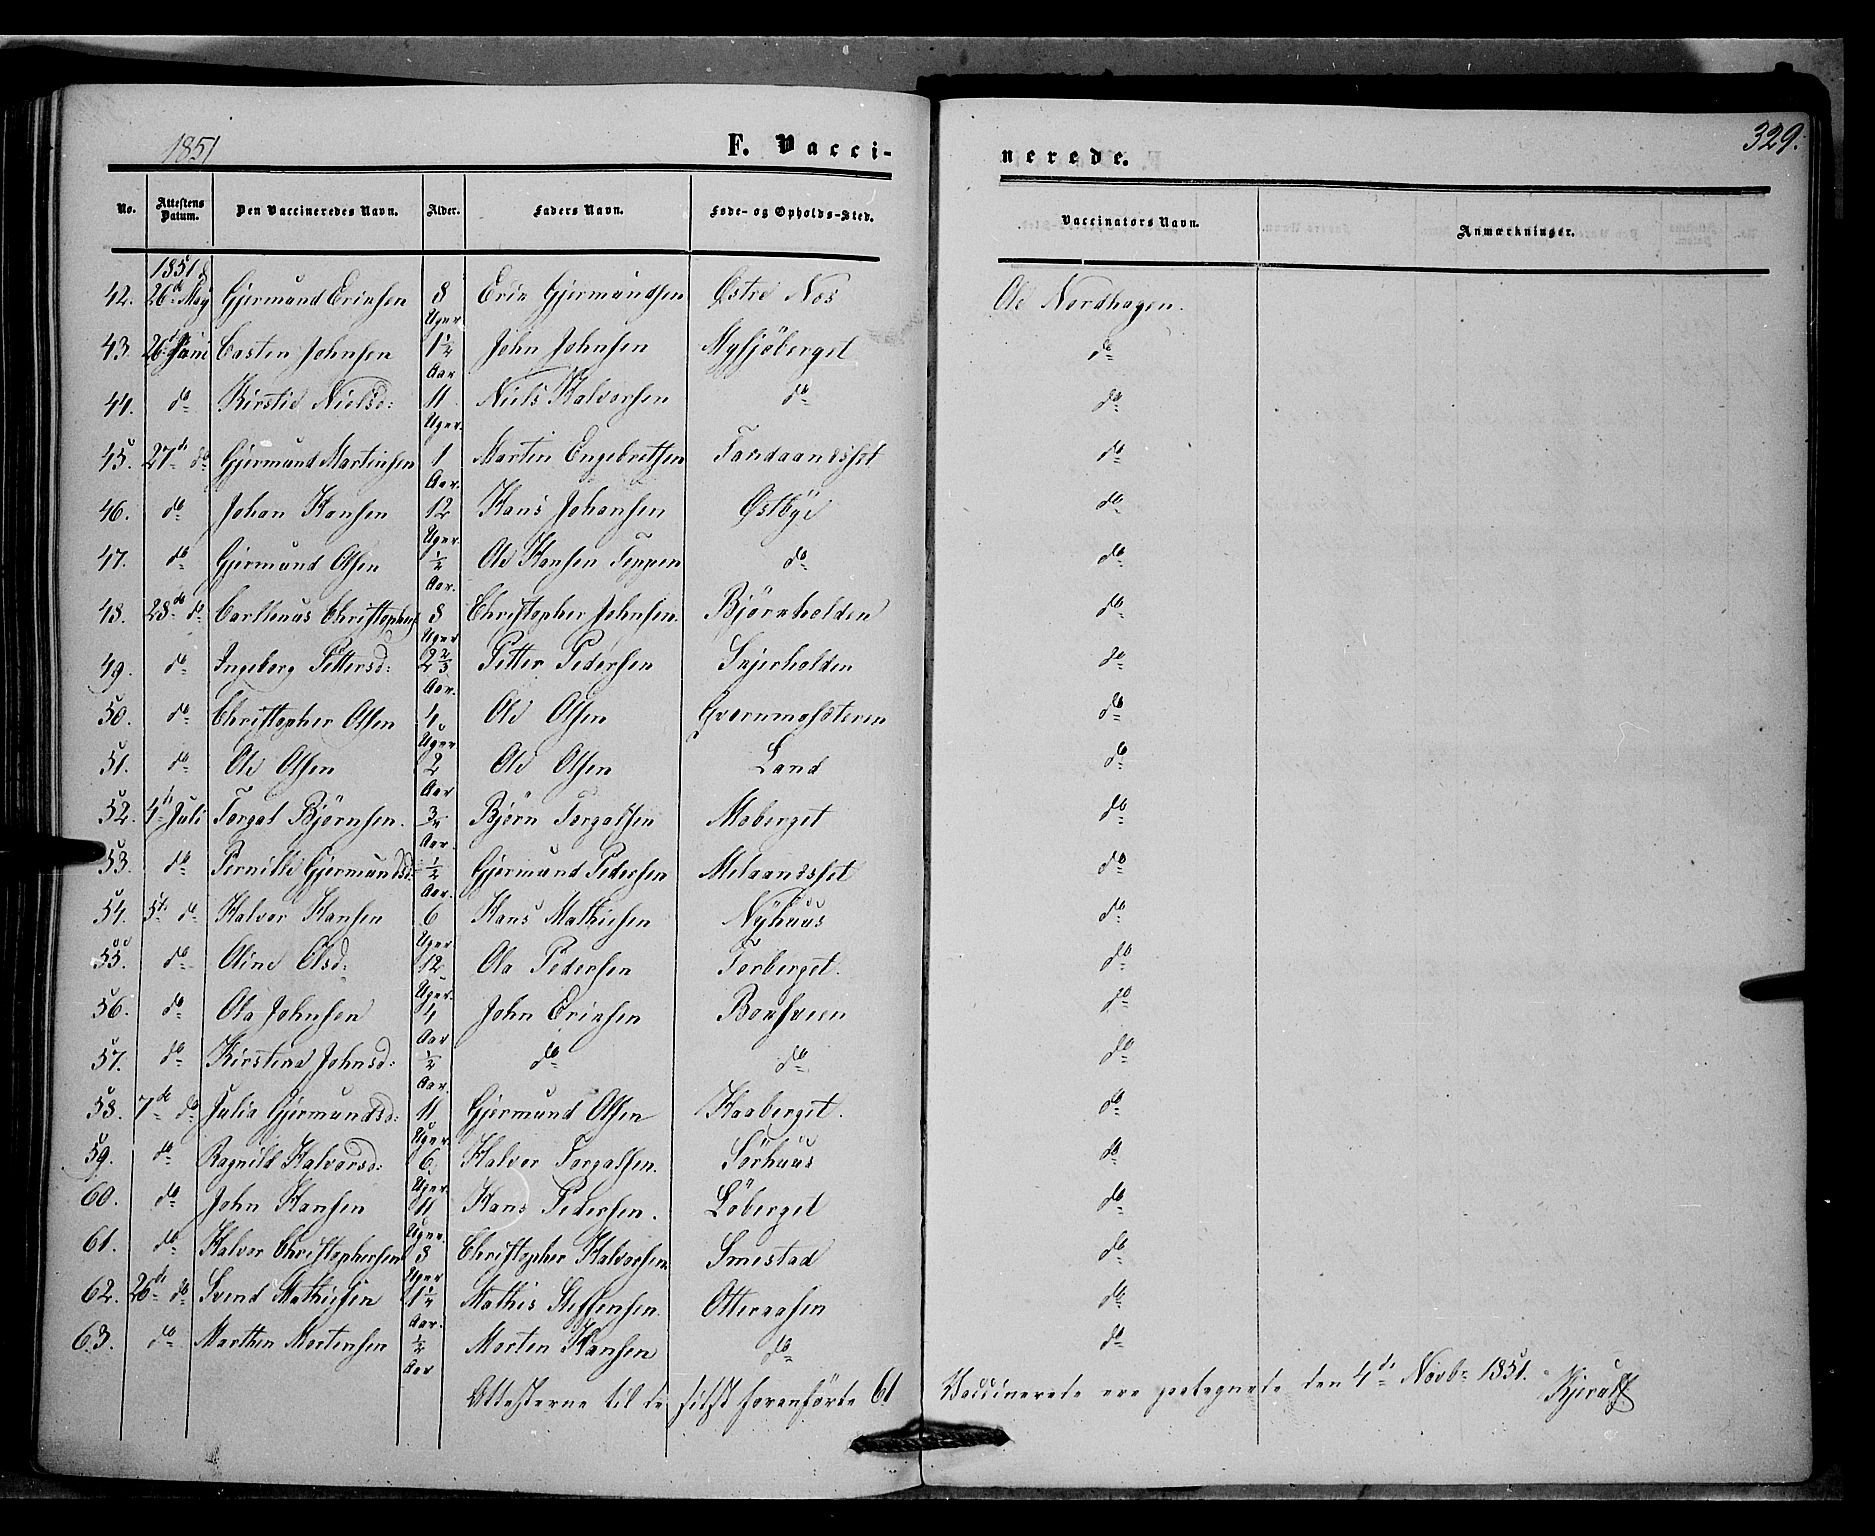 1851
F. Vacci-
nerede.
329.
No. Attestens Datum. Den Vaccineredes Navn. Alder. Faders Navn. Føde- og Opholds-Sted. Vaccinators Navn. Anmærkninger.
1851
42. 26de May Gjermund Erichsen 8 Uger Erich Gjermundsen Østre Næs Ole Nordhagen.
43. 26 Juni Casten Johnsen 1 1/2 Aar John Johnsen Mysjöberget do
44. do Kirstie Nielsd: 11 Uger Niels Halvorsen do do
45. 27de do Gjermund Martinsen 1 Aar. Martin Engebretsen do
46. do Johan Hansen 12 Uger Hans Johansen Østbye do
47. do Gjermund Olsen 1/2 Aar. Ole Hansen Teppen do do
48. 28de do Christophers 8 Uger Christopher Johnsen Björnholden do
49. do Ingeborg Pettersd: 2 2/3 Aar. Petter Pedersen Snjerholden do
50. do Christopher Olsen 4 Uger Ole Olsen Qvernmosæteren do
51. do Ole Olsen 2 Aar Ole Olsen Land do
52. 4de Juli Torgal Björnsen. 3/4 Aar. Björn Torgalsen Moberget do
53. do Pernille Gjermundsd: 1/2 Aar. Gjermund Pedersen Melaandsset do
54. 5te do Halvor Hansen 6 Uger Hans Mathiesen Nÿhuus do
55. do Oline Olsd: 12 Uger. Ola Pedersen Torberget. do
56. do Ola Johnsen 4 Aar John Erichsen do
57. do Kirstine Johnsd: 1/2 Aar. do do do
58. 7de do Julia Gjermundsd: 11 Uger Gjermund Olsen Kaaberget. do
59. do Ragnild Halvorsd: 6 Uger Halvor Torgalsen. Sörhuus do
60. do John Hansen 11 Uger Hans Pedersen. Löberget do
61. do Halvor Christophersen 8 Uger Christopher Halvorsen Smestad do
62. 26de do Svend Mathiesen 1 1/4 Aar. Mathis Steffensen. Otteraasen do
63. do Marthin Mortensen 1/2 Aar Morten Hansen do do
Attesterne til de sidst foranførte 61 Vaccinerede ere paategnede den 4de Novbr 1851. Kjerulf